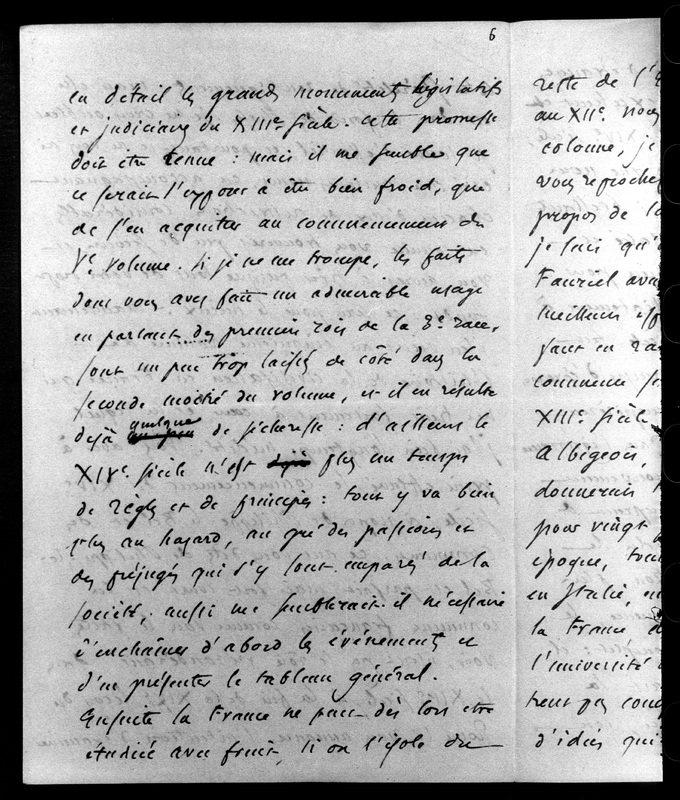 6
en détail les grands monuments législatifs
et judiciaires du XIIIe siècle. Cette promesse
doit être tenue : mais il me semble que
ce serait l'exposer à être bien froid, que
de s'en acquitter au commencement du
Ve volume. Si je ne me trompe, les faits
dont vous avez fait un admirable usage
en parlant des premiers rois de la 3e race,
sont un peu trop laissés de côté dans la
seconde moitié du volume, et il en résulte
déjà quelque de sécheresse : d'ailleurs le
XIVe siècle n'est plus un temps
de règles et de principes : tout y va bien
plus au hazard, au gré des passions et
des préjugés qui s'y sont emparés de la
société, aussi me semblerait-il nécessaire
d'enchaîner d'abord les événements et
d'en présenter le tableau général.
Ensuite la France ne peut dès lors etre
étudiée avec fruit, si on l'isole du
reste de l'
au XIIe. nous
colonne, je
vous reproche
propos de la
je sais qu'
Fauriel avai
meilleur
commence
XIIIe siècle
Albigeois,
donnerais
pour vingt
époque, tou
en Italie, en
la France
l'université
trent pas
d'idées qui